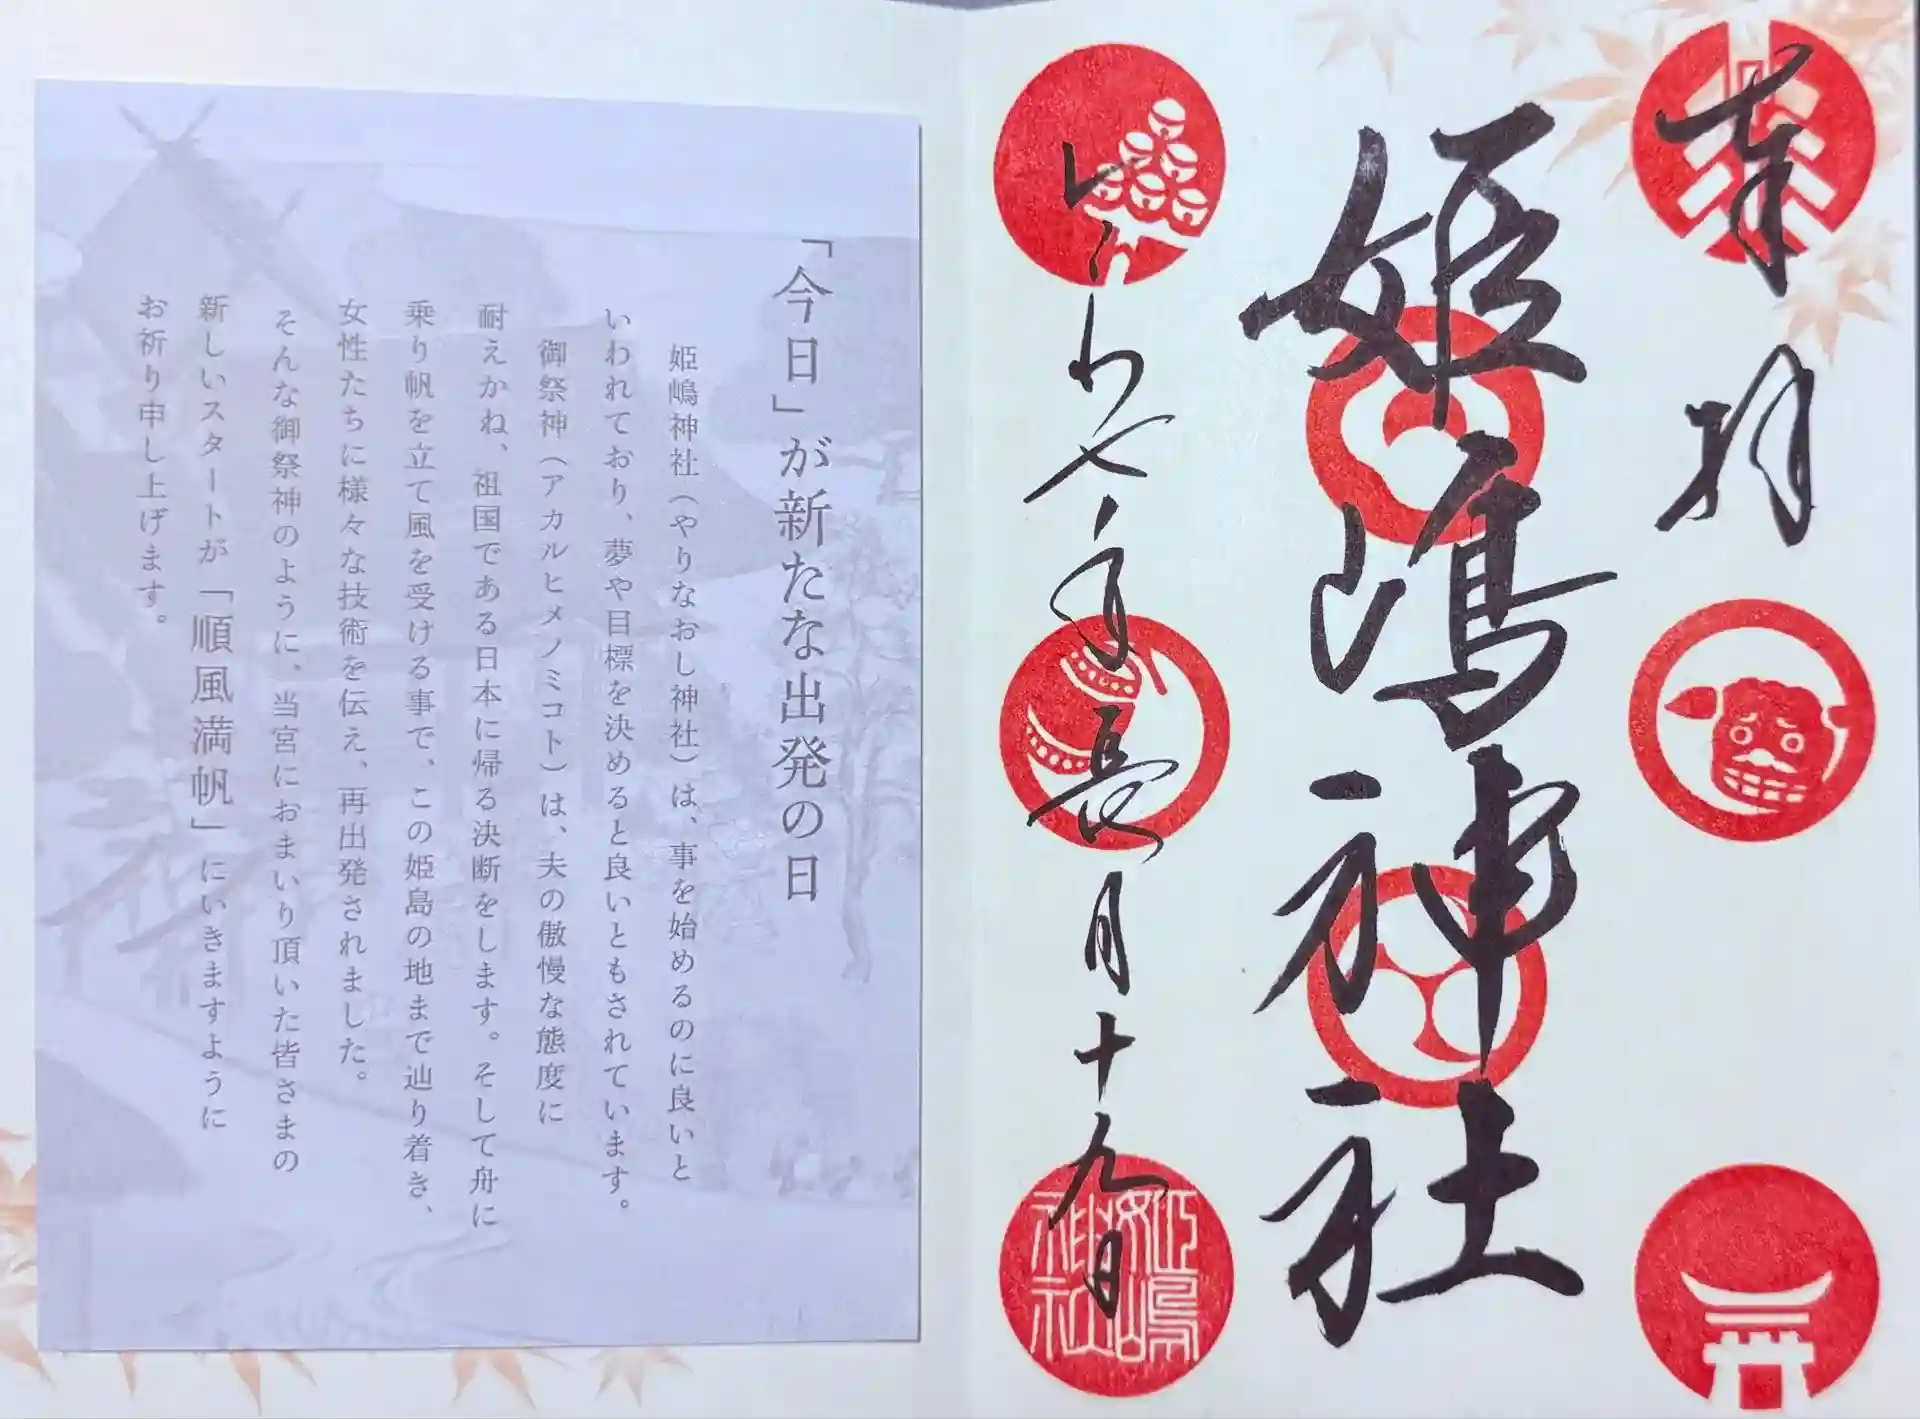 奉拝
姫嶋神社
令和七年長月十九日
姫嶋
神社
「今日」が新たな出発の日
姫嶋神社（やりなおし神社）は、事を始めるのに良いと
いわれており、夢や目標を決めると良いともされています。
御祭神（アカルヒメノミコト）は、夫の傲慢な態度に
耐えかね、祖国である日本に帰る決断をします。そして舟に
乗り帆を立て風を受ける事で、この姫島の地まで辿り着き、
女性たちに様々な技術を伝え、再出発されました。
そんな御祭神のように、当宮におまいり頂いた皆さまの
新しいスタートが「順風満帆」にいきますように
お祈り申し上げます。